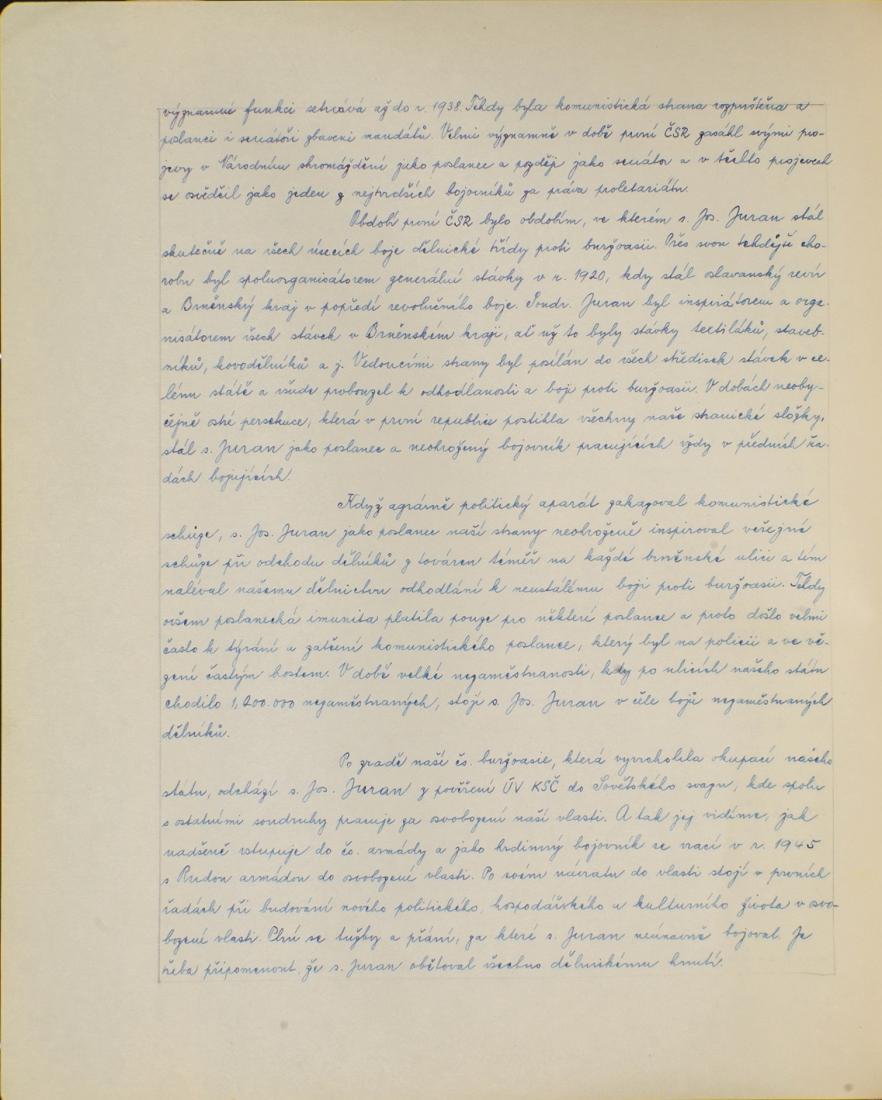 významné funkci setrvává až do r. 1938. Tehdy byla komunistická strana rozpuštěna a
poslanci i senátoři zbaveni mandátů. Velmi významně v době první ČSR zasáhl svými pro-
jevy v Národním shromáždění jako poslanec a později jako senátor a v těchto projevech
se osvědčil jako jeden z nejtvrdších bojovníků za práva proletariátu.
Období první ČSR bylo obdobím, ve kterém s. Jos. Juran stál
skutečně na všech úsecích boje dělnické třídy proti buržoasii. Přes svou tehdejší cho-
robu byl spoluorganisátorem generální stávky v r. 1920, kdy stál oslavanský revír
a Brněnský kraj v popředí revolučního boje. Soudr. Juran byl inspirátorem a orga-
nisátorem všech stávek v Brněnském kraji, ať už to byly stávky textiláků, staveb-
níků, kovodělníků a j. Vedoucími strany byl posílán do všech středisek stávek v ce-
lém státě a všude probouzel k odhodlanosti a boji proti buržoasii. V dobách neoby-
čejně ostré persekuce, která v první republice postihla všechny naše stranické složky,
stál s. Juran jako poslanec a neohrožený bojovník pracujících vždy v předních řa-
dách bojujících.
Když agrárně politický aparát zakazoval komunistické
schůze, s. Jos. Juran jako poslanec naší strany neohroženě inspiroval veřejné
schůze při odchodu dělníků z továren téměř na každé brněnské ulici a tím
naléval našemu dělnictvu odhodlání k neustálému boji proti buržoasii. Tehdy
ovšem poslanecká imunita platila pouze pro některé poslance a proto došlo velmi
často k týrání a zatčení komunistického poslance, který byl na policii a ve vě-
zení častým hostem. V době velké nezaměstnanosti, kdy po ulicích našeho státu
chodilo 1,200.000 nezaměstnaných, stojí s. Jos. Juran v čele bojů nezaměstnaných
dělníků.
Po zradě naší čs. buržoasie, která vyvrcholila okupací našeho
státu, odchází s. Jos. Juran z pověření ÚV KSČ do Sovětského svazu, kde spolu
s ostatními soudruhy pracuje za osvobození naší vlasti. A tak jej vidíme, jak
nadšeně vstupuje do čs. armády a jako hrdinný bojovník se vrací v r. 1945
s Rudou armádou do osvobozené vlasti. Po svém návratu do vlasti stojí v prvních
řadách při budování nového politického, hospodářského a kulturního života v osvo-
bozené vlasti. Plní se tužby a přání, za které s. Juran neúnavně bojoval. Je
třeba připomenout, že s. Juran obětoval všechno dělnickému hnutí.